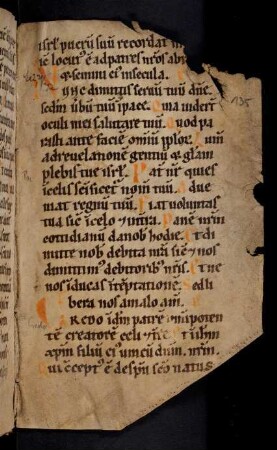 isrl puerũ suũ recordat
sic locut' ẽ ad patres nros abr
& semini ei' in secula.
Nunc dimittis servũ tuũ dñe
scdm ũbũ tuũ ĩ pace. Quia vidert
oculi mei salutare tuũ. Quod pa
rasti ante faciẽ omniũ pplor. Lum̃
ad revelationẽ gentiũ & glam
plebis tue isrl. Pat nr qui es
ĩ celis scificet nom̃ tuũ. Adve
niat regnũ tuũ. Fiat voluntas
tua sic ĩ celo & ĩ tra. Panẽ nrm
cottidianũ da nob hodie. Et di
mitte nob debita nra sic & nos
dimittim' debitorib' nris. Et ne
nos iducas ĩ tẽptatione. Sed li
bera nos a malo am̃.
Credo ĩ dm̃ patrẽ omipoten
tẽ creatorẽ celi & tre. Et ĩ ihm
xpm filiũ ei' unicũ dnm nrm.
Qui ccept' ẽ de spu sco natus
135